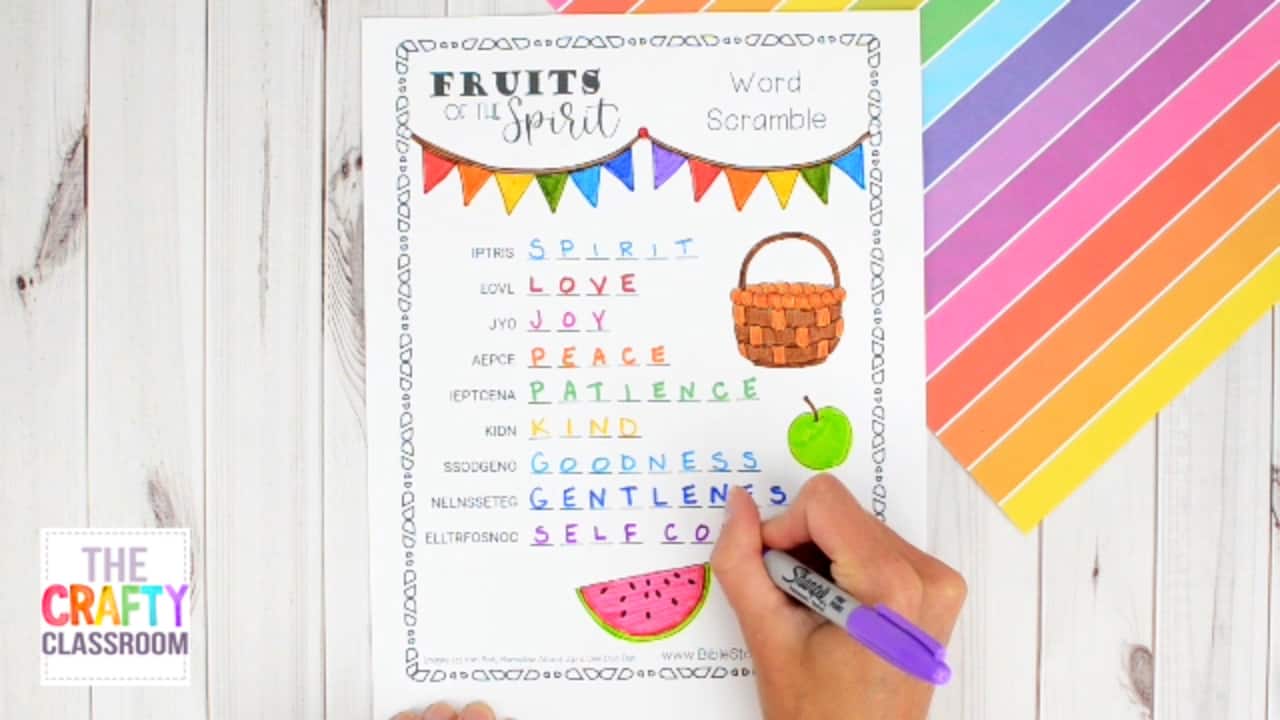 FRUITS
OF THE Spirit
Word
Scramble
IPTRIS SPIRIT
EOVL LOVE
JYO JOY
AEPCE PEACE
IEPTCENA PATIENCE
KIDN KIND
SSODGENO GOODNESS
NELNSSETEG GENTLENES
ELLTRFOSNOC SELF CO
www.BibleSto
Sharpie
THE
CRAFTY
CLASSROOM